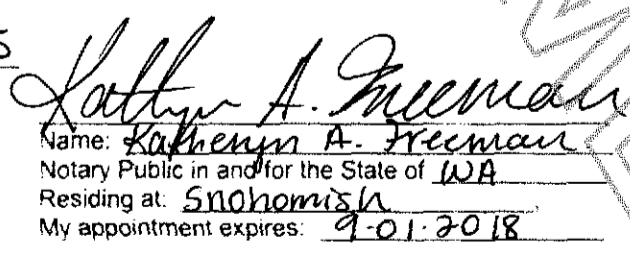 5
Kathryn A. Freeman
Name: Katheryn A. Freeman
Notary Public in and for the State of WA
Residing at: Snohomish
My appointment expires: 9-01-2018